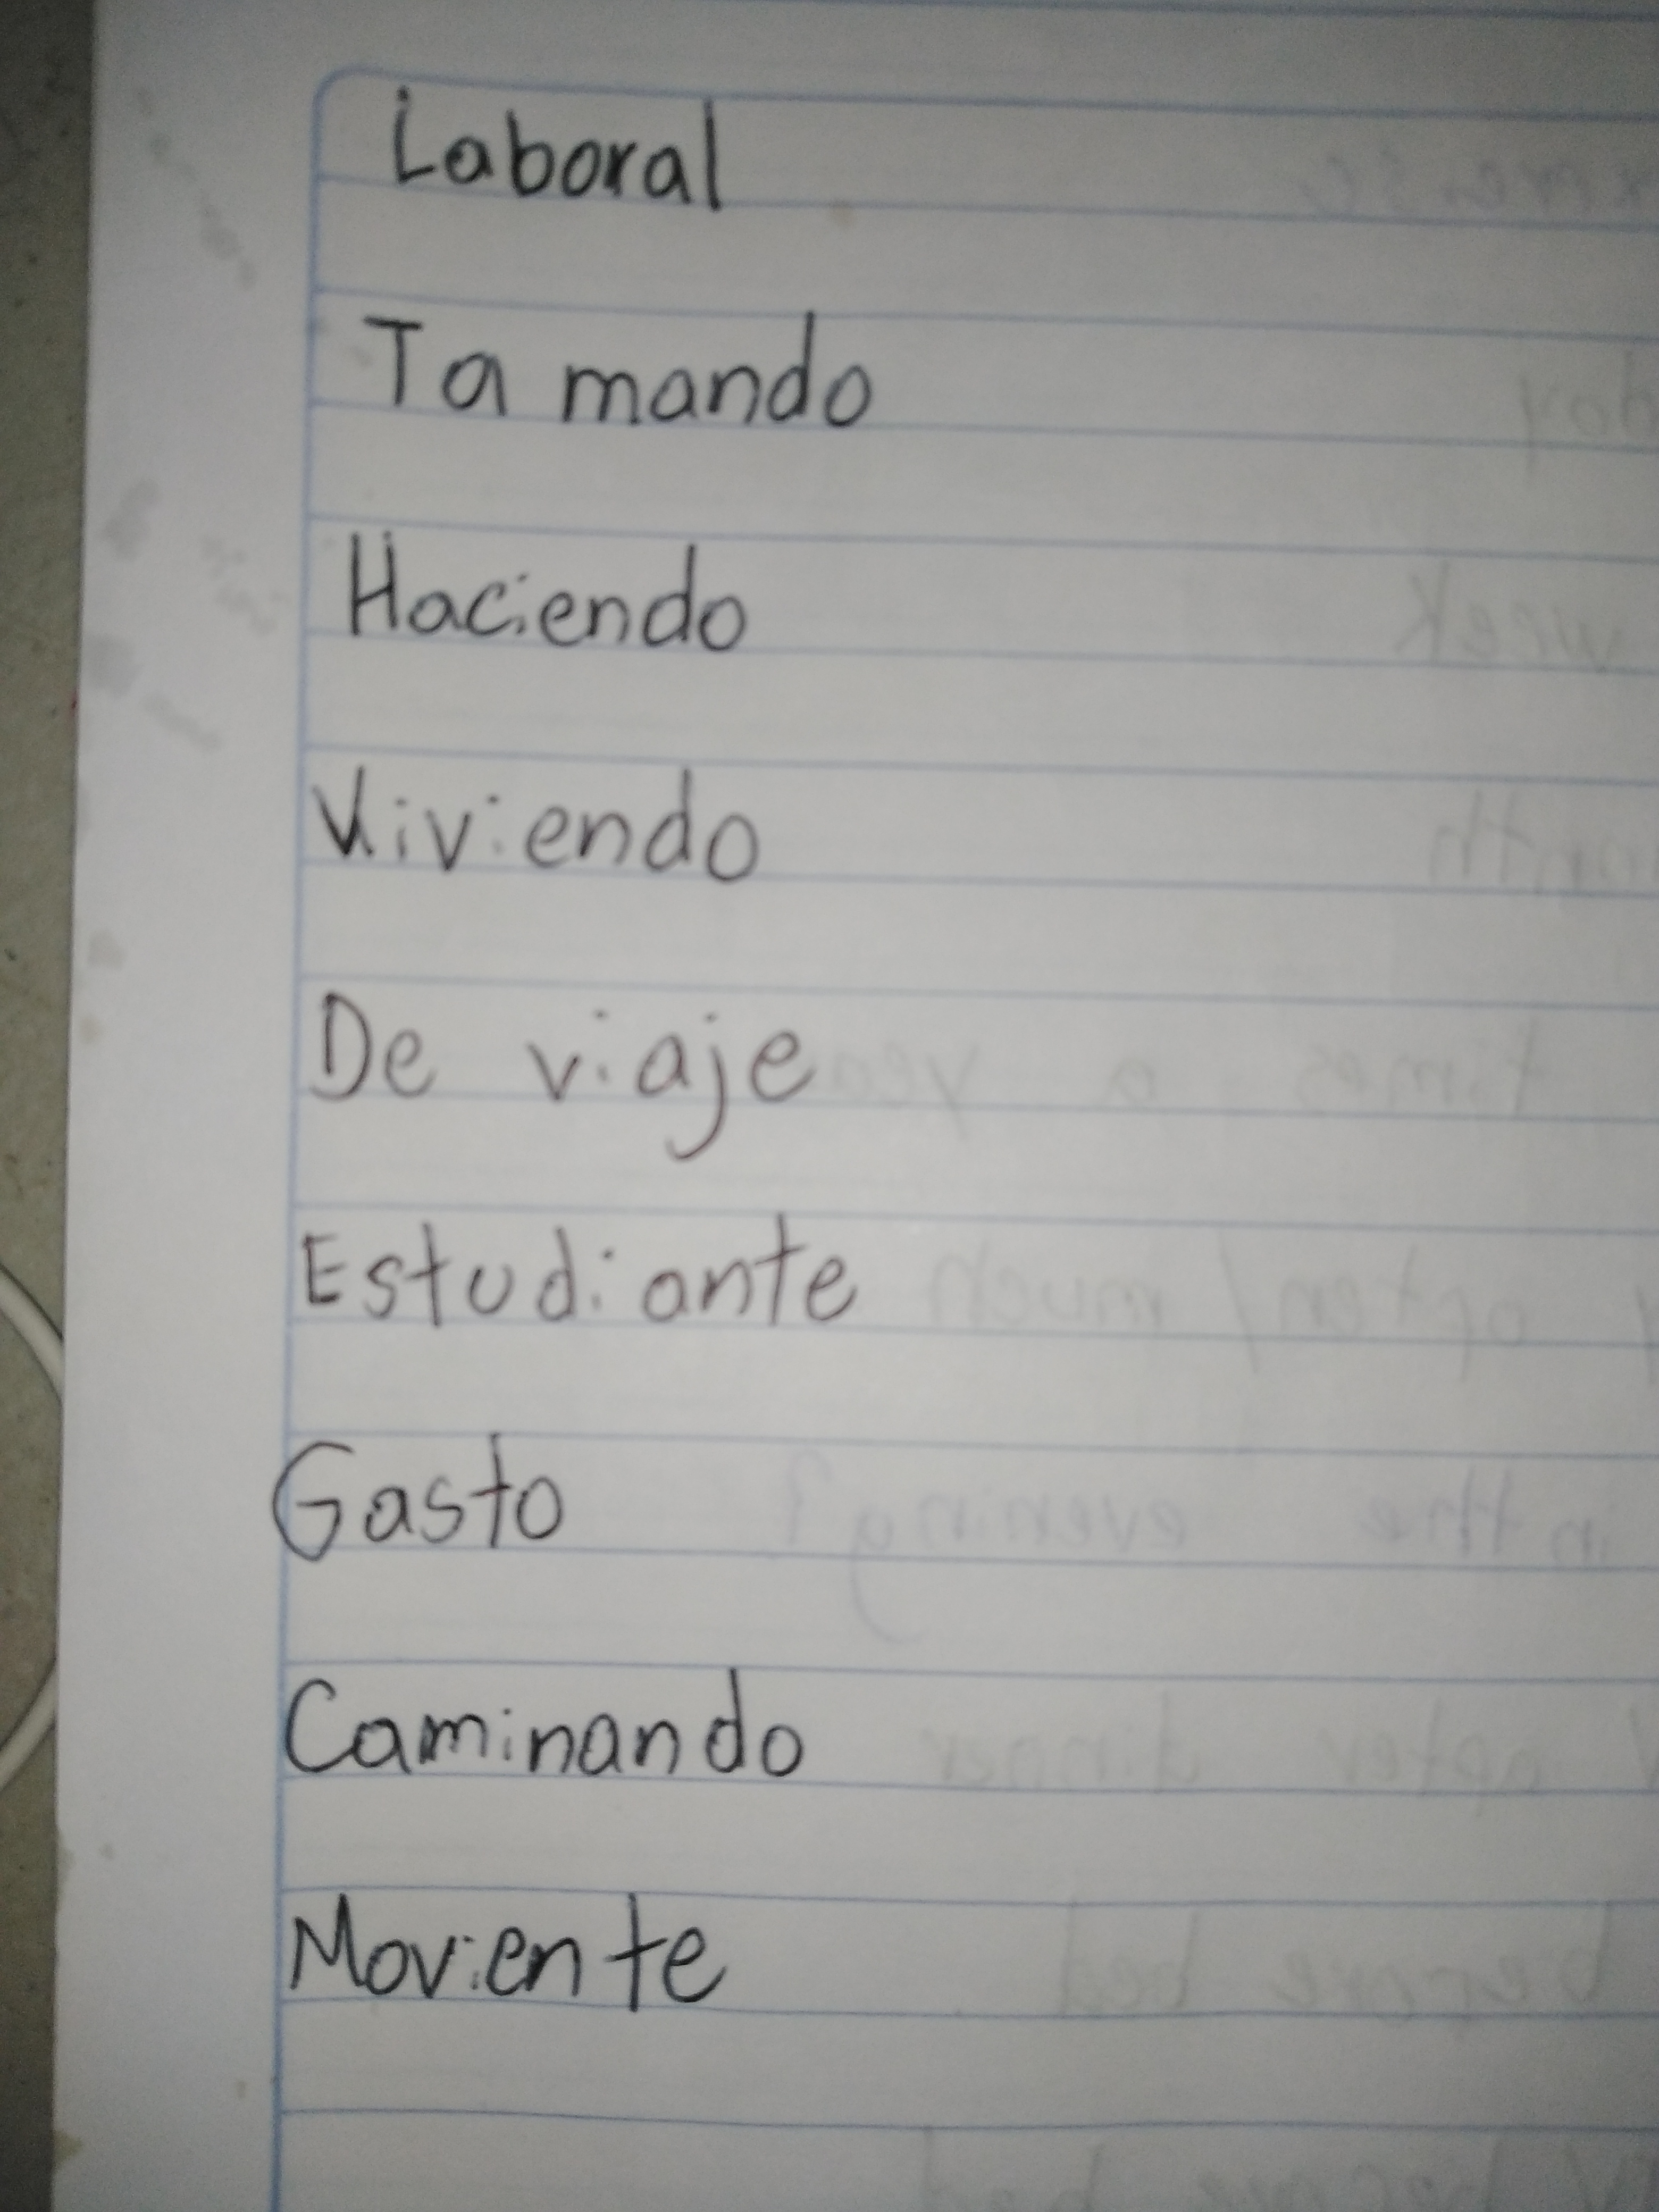 Laboral
Ta mando
Haciendo
Viviendo
De viaje
Estudiante
Gasto
Caminando
Moviente